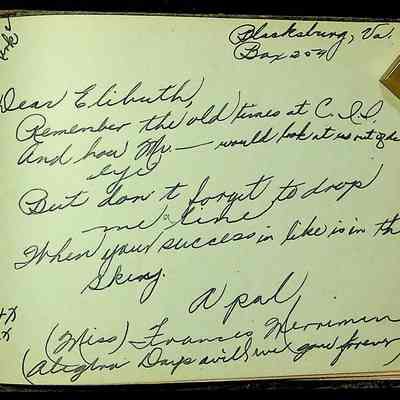 Blacksburg, Va.
Box 204
Dear Elibuth,
Remember the old times at C. I. I.
And how Mr. — would look at us out of the
eye
But don't forget to drop
me a line
When your success in like is in th
Skiny.
A pal
(Miss) Frances Merriman
(Alegbra Days will live you forever)